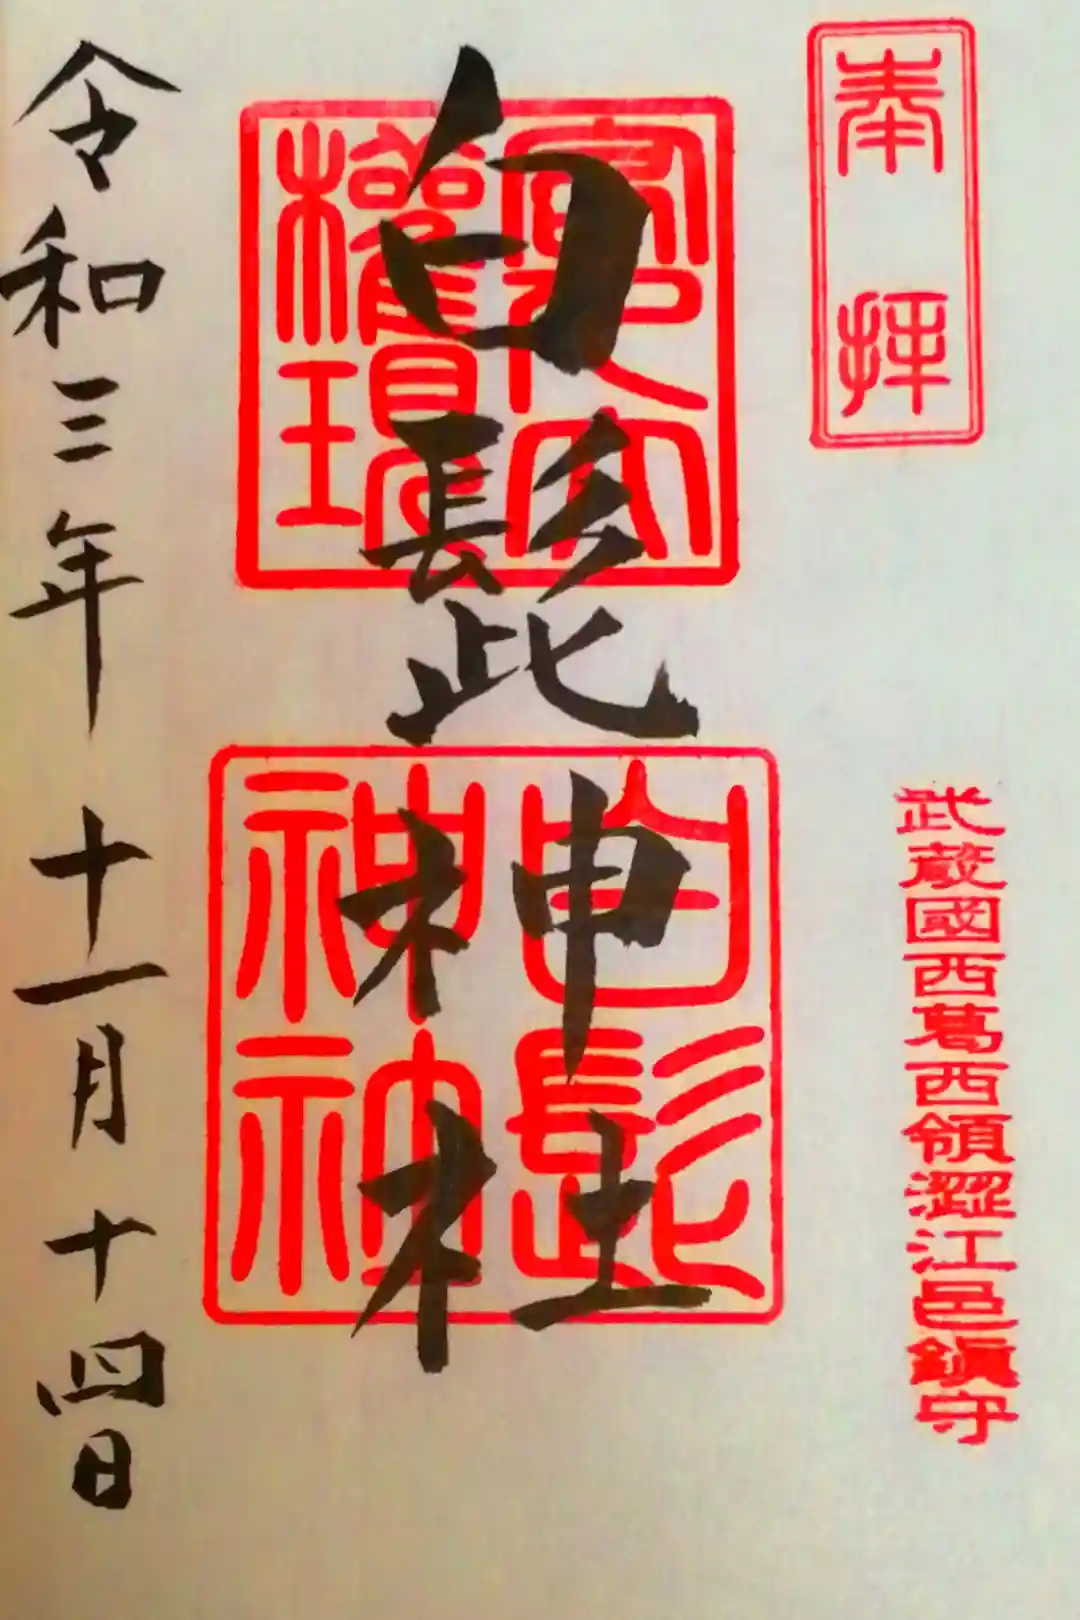 奉拝
武蔵國西葛西領澀江邑鎮守
白髭神社
白髭神社
令和三年 十一月十四日